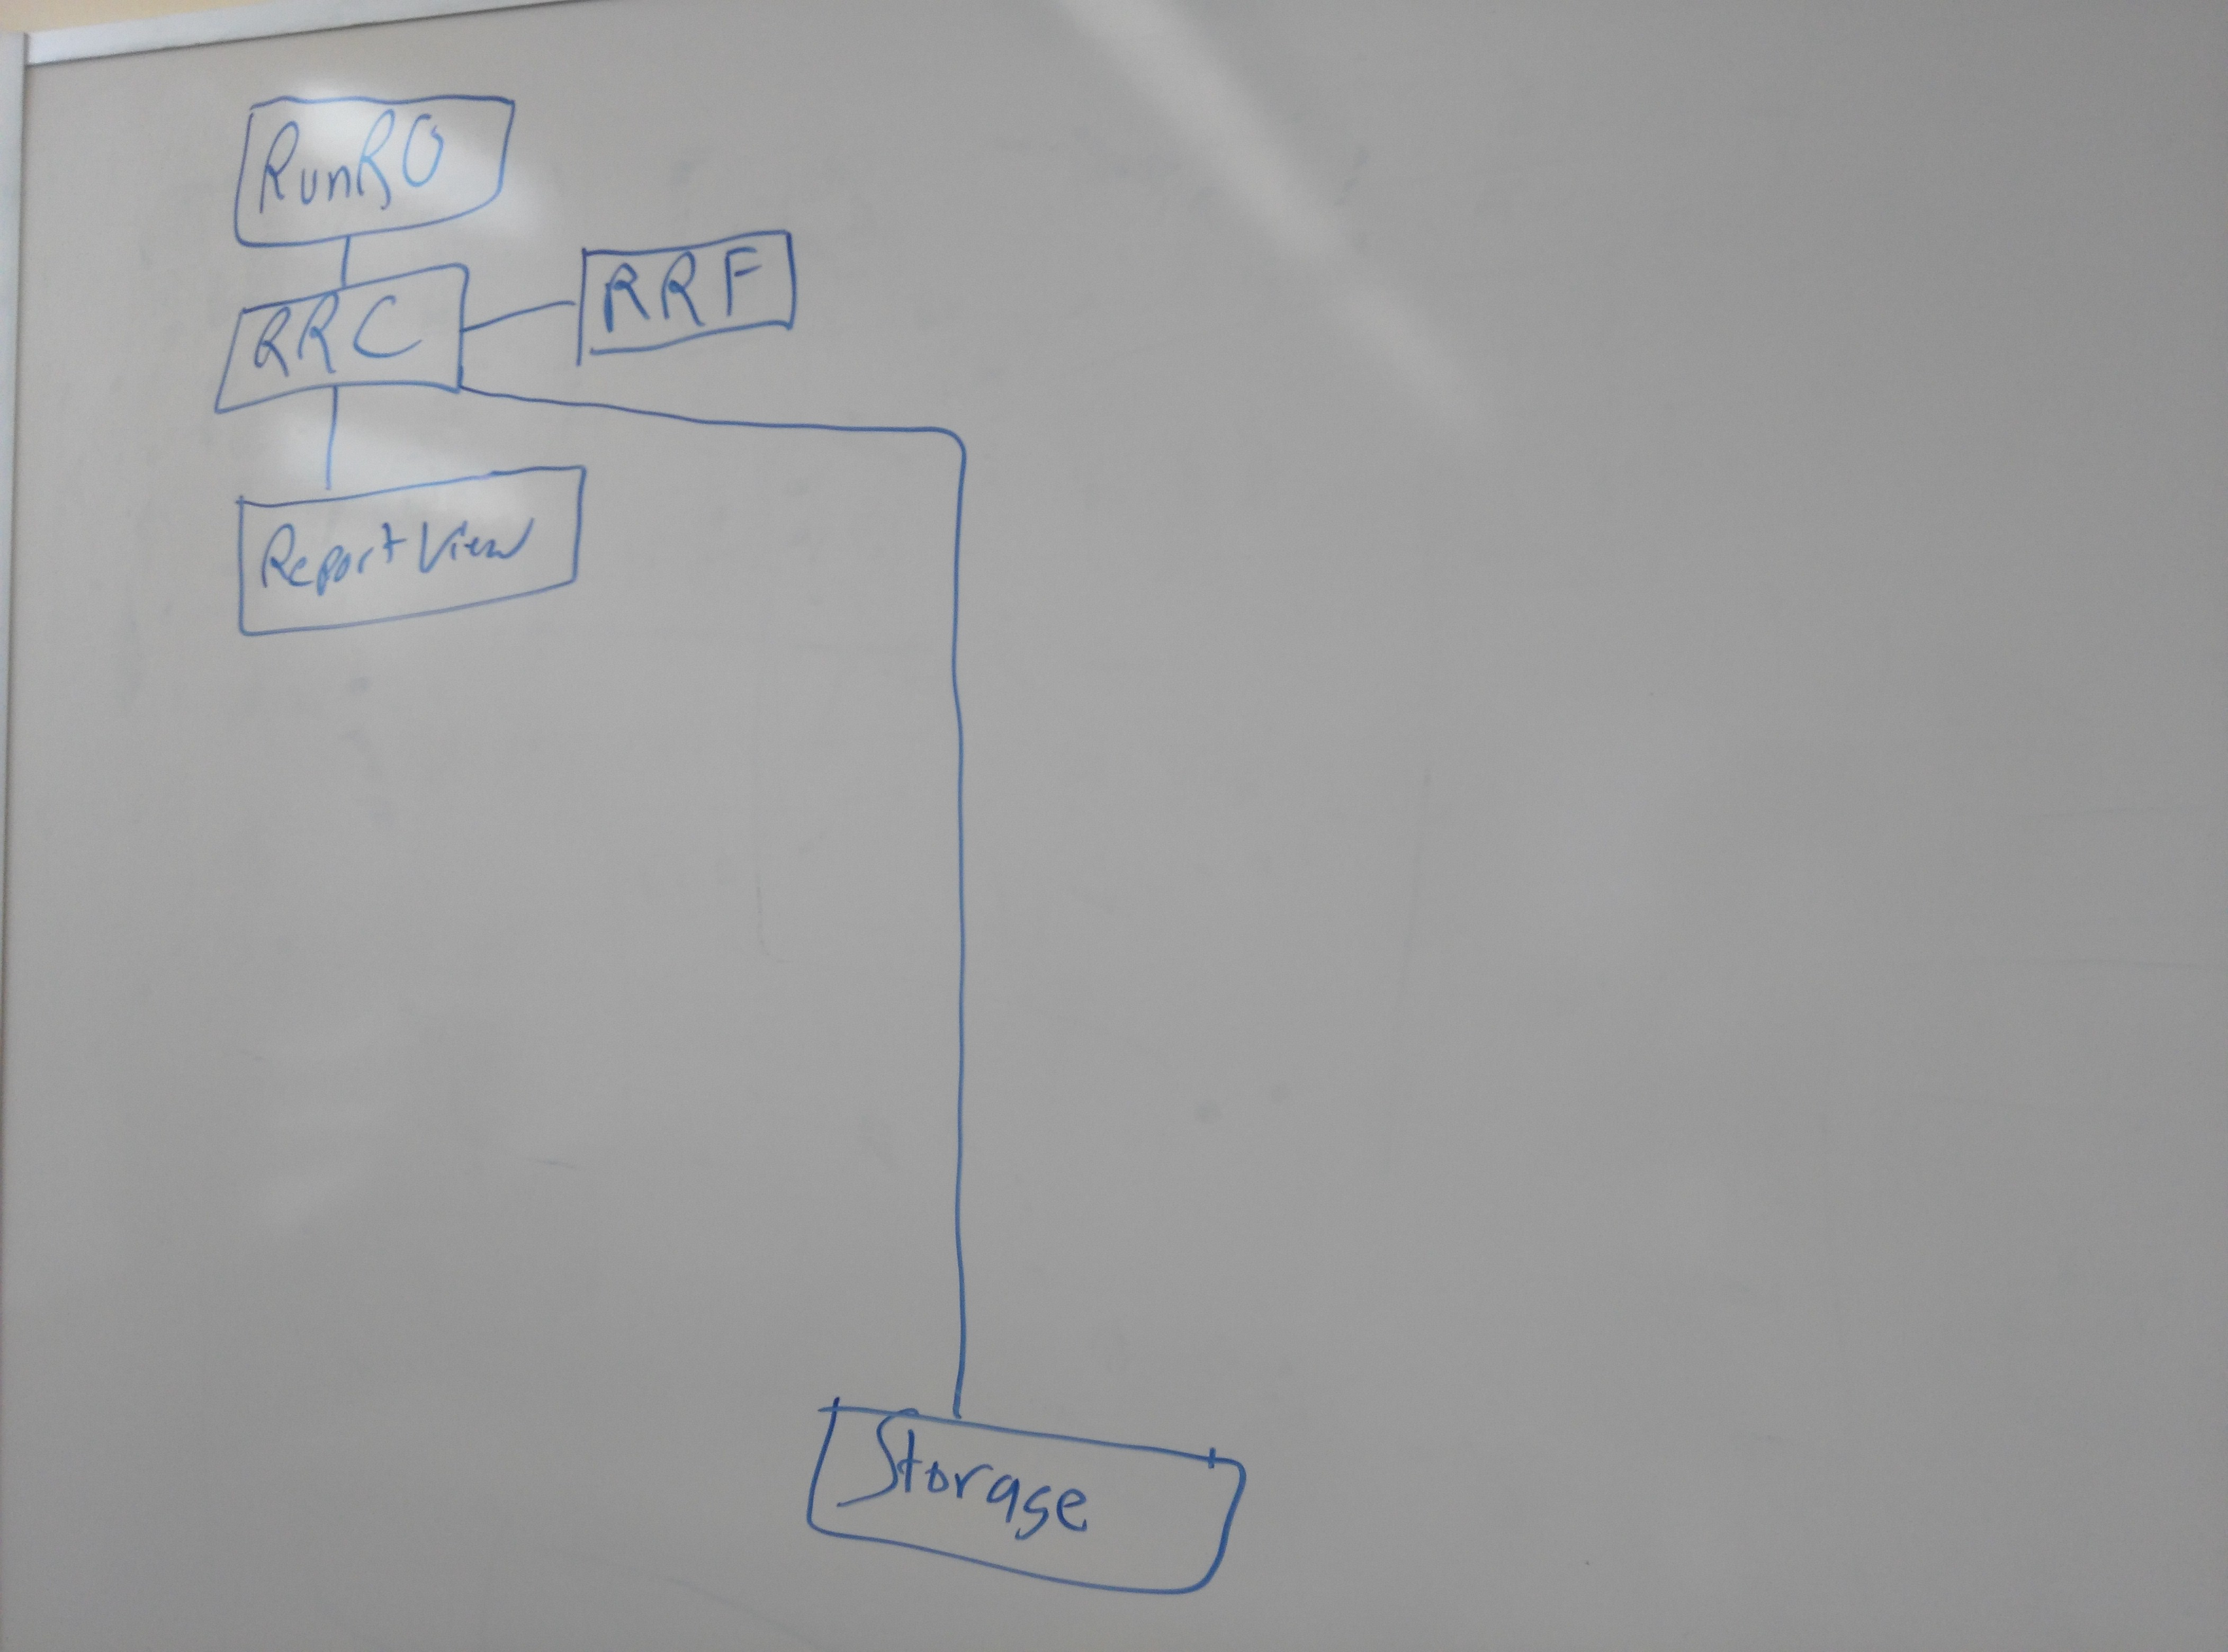 RunRO
RRC
RRF
Report View
Storage